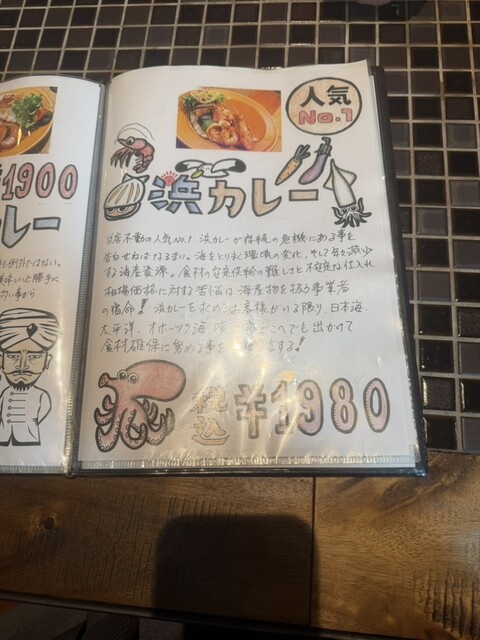 ¥1900
レー
人気
No.1
浜カレー
当店不動の人気No.1 浜カレーが存続の危機にある事を
告白せねばなるまい。海をとりまく環境の変化、そして年々減少
する海産資源。食材の安定供給の難しさと不安定な仕入れ
相場価格に対する苦悩は海産物を扱う事業者
の宿命! 浜カレーを求めるお客様がいる限り、日本海
太平洋、オホーツク海 どこへでも出かけて
食材確保に努める事を する!
税込 ¥1980